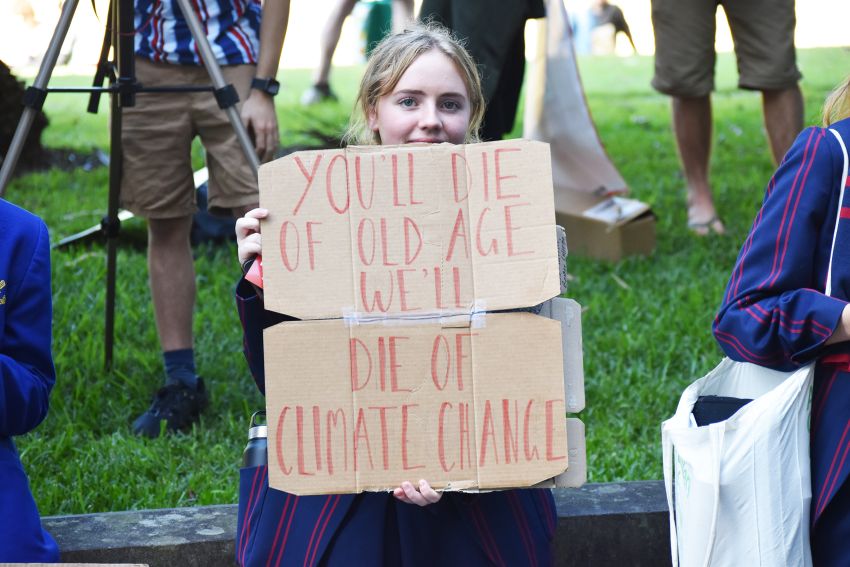 YOU'LL DIE
OF OLD AGE
WE'LL
DIE OF
CLIMATE CHANGE